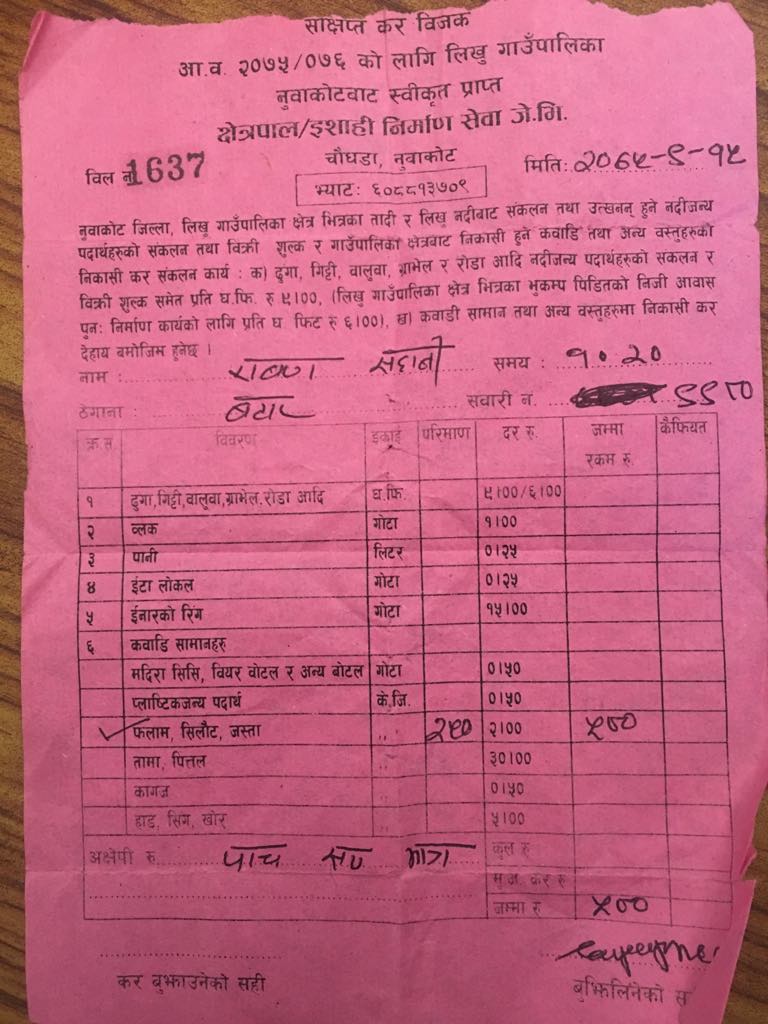 संक्षिप्त कर विजक
आ.व. २०७५/०७६ को लागि लिखु गाउँपालिका
नुवाकोटबाट स्वीकृत प्राप्त
क्षेत्रपाल/इशाही निर्माण सेवा जे.भि.
चौघडा, नुवाकोट
विल नं 1637
मिति:
भ्याट: ६०८८१३७०९
नुवाकोट जिल्ला, लिखु गाउँपालिका क्षेत्र भित्रका तादी र लिखु नदीबाट संकलन तथा उत्खनन् हुने नदीजन्य
पदार्थहरुको संकलन तथा विक्री शुल्क र गाउँपालिका क्षेत्रबाट निकासी हुने कवाडि तथा अन्य वस्तुहरुको
निकासी कर संकलन कार्य : क) ढुंगा, गिट्टी, वालुवा, ग्राभेल र रोडा आदि नदीजन्य पदार्थहरुको संकलन र
विक्री शुल्क समेत प्रति घ.फि. रु ५।००, (लिखु गाउँपालिका क्षेत्र भित्रका भुकम्प पिडितको निजी आवास
पुन: निर्माण कार्यको लागि प्रति घ. फिट रु ६।००), ख) कवाडी सामान तथा अन्य वस्तुहरुमा निकासी कर
देहाय बमोजिम हुनेछ ।
नाम : समय : १०.२०
ठेगाना : सवारी न.
क्र.स विवरण इकाई परिमाण दर रु. जम्मा रकम रु. कैफियत
१ ढुगा,गिट्टी,वालुवा,ग्राभेल,रोडा आदि घ.फि. ५।००/६।००
२ व्लक गोटा १।००
३ पानी लिटर ०।२५
४ इंटा लोकल गोटा ०।२५
५ ईनारको रिंग गोटा १५।००
६ कवाडि सामानहरु
मदिरा सिसि, वियर वोटल र अन्य बोटल गोटा ०।५०
प्लाष्टिकजन्य पदार्थ के.जि. ०।५०
फलाम, सिलौट, जस्ता ,, २५० २।०० ५००
तामा, पित्तल ,, ३०।००
कागज ०।५०
हाड, सिंग, खोर ,, ५।००
अक्षेपी रु. पाच सय मात्र कुल रु
मू.अ. कर रु
जम्मा रु ५००
कर बुझाउनेको सही
बुझिलिनेको स